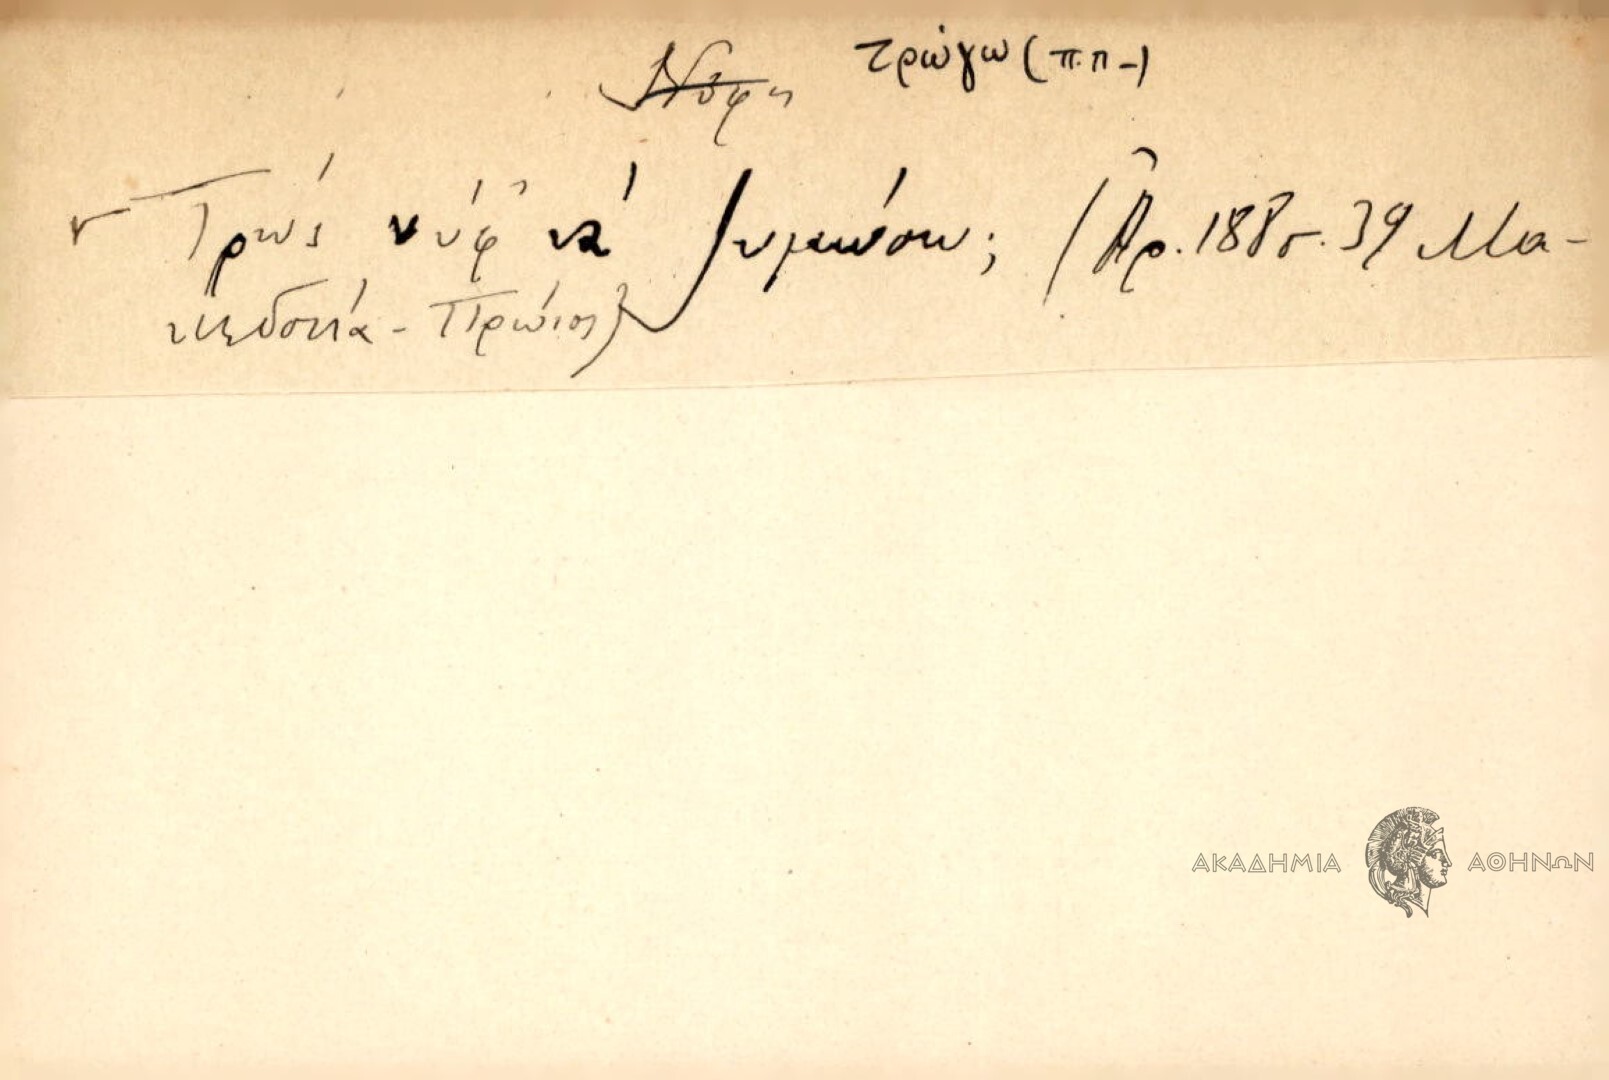 Νύφη τρώγω (π.π-)
Τρώς νύφ' νά ζυμώσω; (Ἀρ. 188 σ. 39 Μα-
κεδονία - Πρώιος)
ΑΚΑΔΗΜΙΑ ΑΘΗΝΩΝ